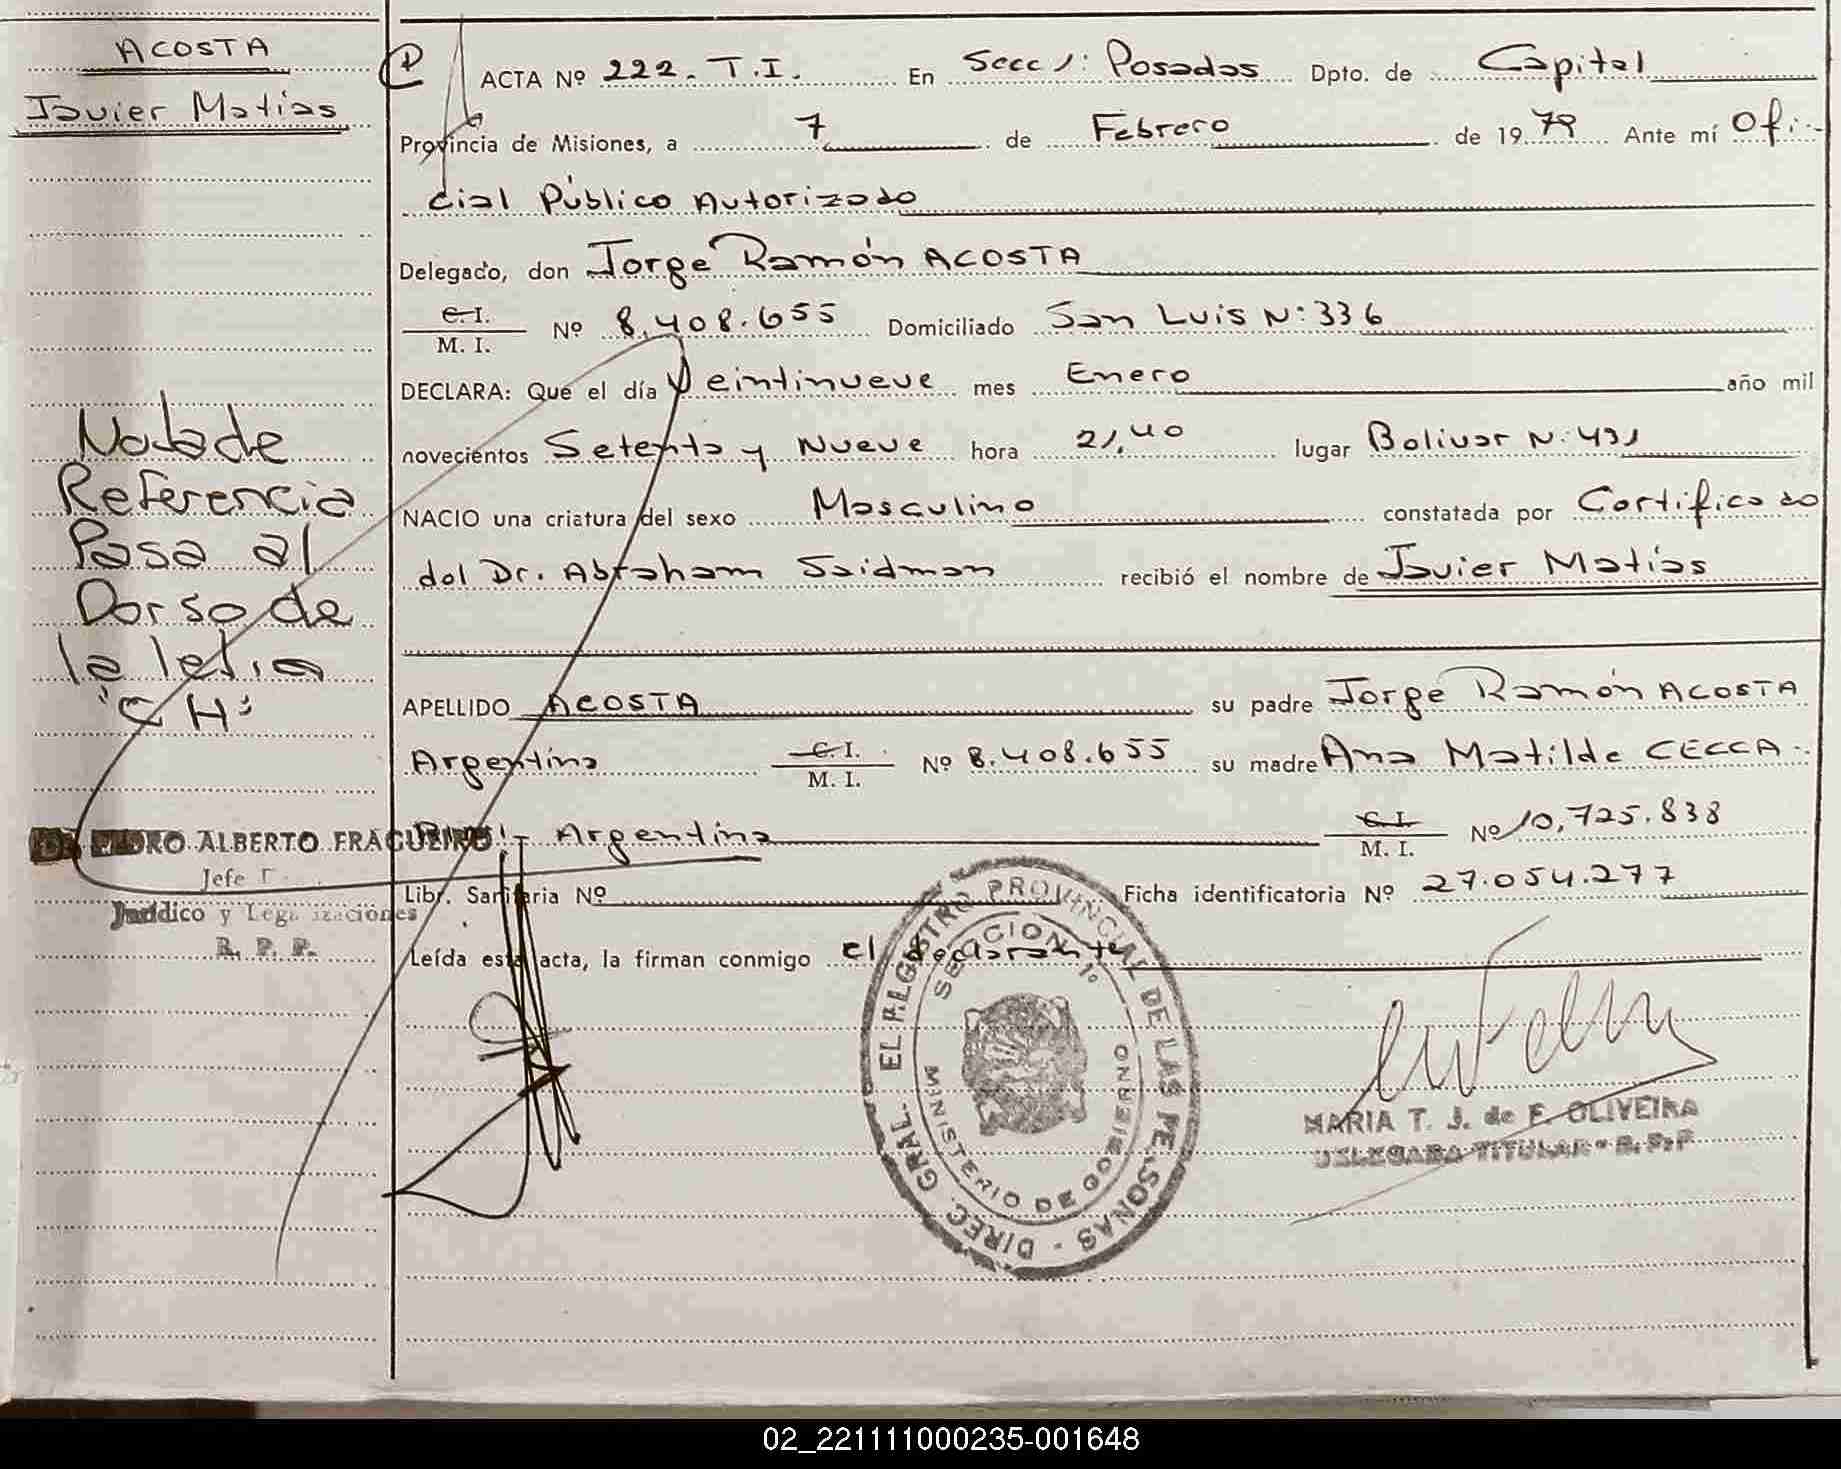 ACOSTA
Javier Matías
ACTA Nº 222. T.I. En Secc 1: Posadas Dpto. de Capital
Provincia de Misiones, a 7 de Febrero de 1979 Ante mí Ofi-
cial Público Autorizado
Delegado, don Jorge Ramón ACOSTA
C. I.
M. I.
Nº 8.408.655 Domiciliado San Luis N: 336
DECLARA: Que el día Veintinueve mes Enero año mil
novecientos Setenta y Nueve hora 21,40 lugar Bolivar N: 431
NACIO una criatura del sexo Masculino constatada por Certificado
del Dr. Abraham Saidman recibió el nombre de Javier Matías
APELLIDO ACOSTA su padre Jorge Ramón ACOSTA
Argentino C. I.
M. I.
Nº 8.408.655 su madre Ana Matilde CECCA
Argentina C. I.
M. I.
Nº 10,725.838
Libr. Sanitaria Nº Ficha identificatoria Nº 27.054.277
Leída esta acta, la firman conmigo el declarante
Nota de
Referencia
Pasa al
Dorso de
la letra
"CH"
PEDRO ALBERTO FRAGUEIRO
Jefe
Jurídico y Legalizaciones
R. P. P.
DIREC. GRAL. EL REGISTRO PROVINCIAL DE LAS PERSONAS
SECCION 1º
MINISTERIO DE GOBIERNO
MARIA T. J. de F. OLIVEIRA
DELEGADA TITULAR - R. P. P.
02_221111000235-001648